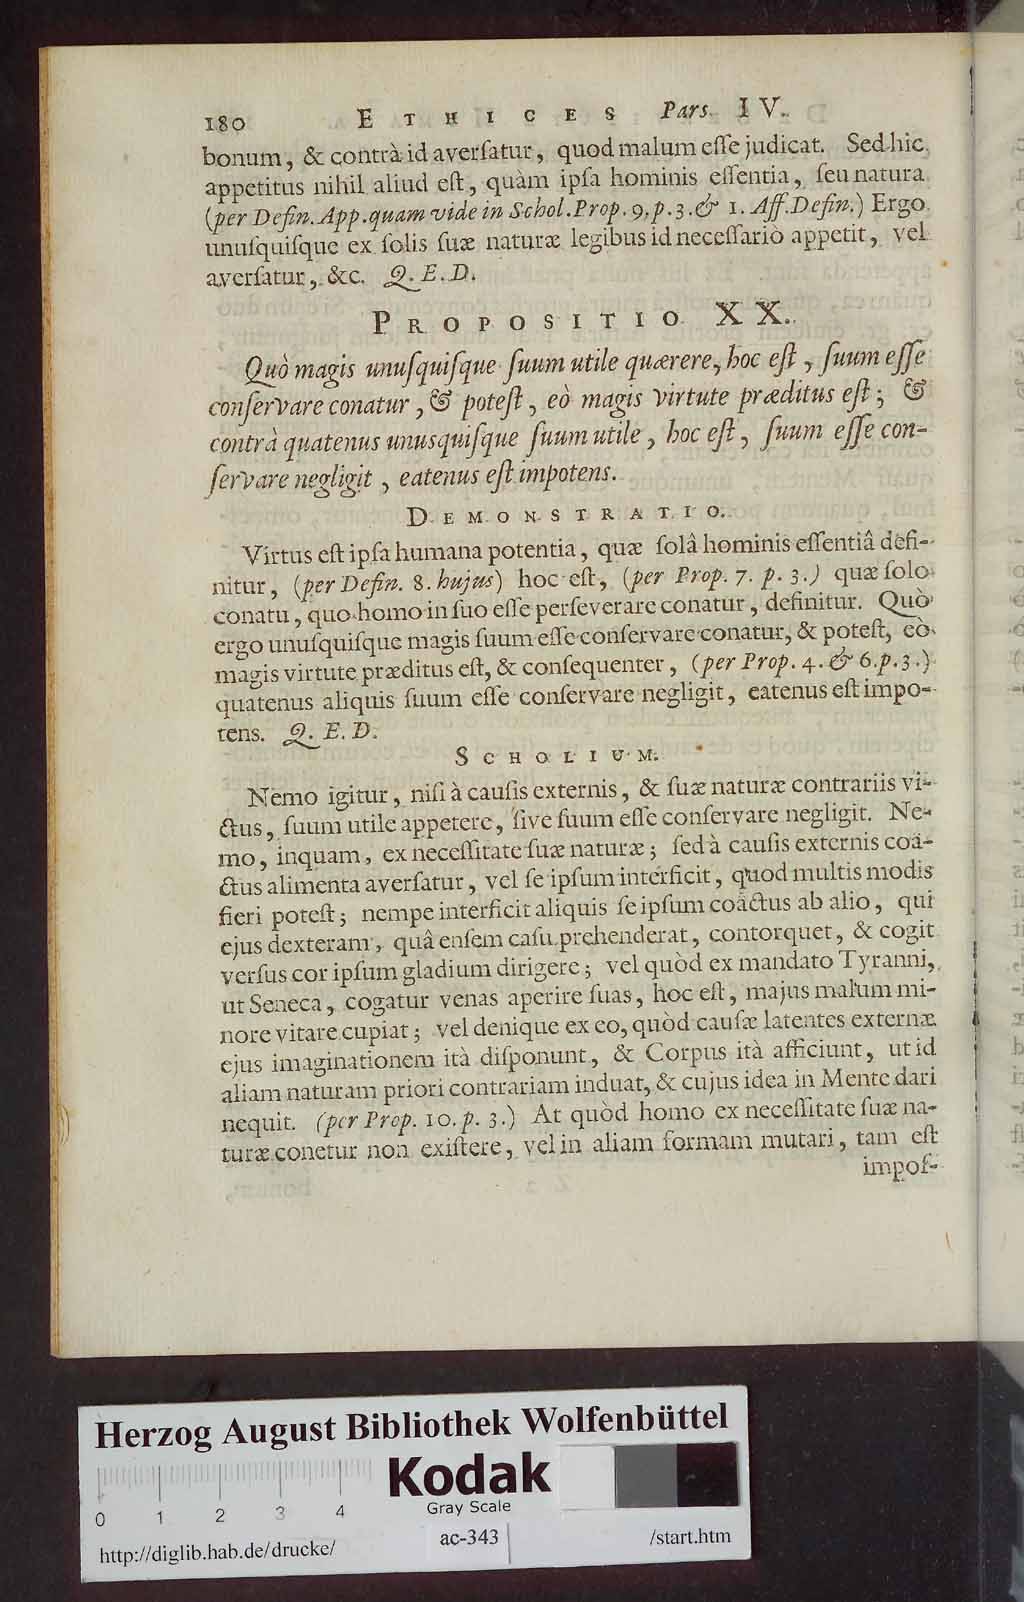 180 ETHICES Pars. IV.
bonum, & contrà id averſatur, quod malum eſſe judicat. Sed hic
appetitus nihil aliud eſt, quàm ipſa hominis eſſentia, ſeu natura
(per Defin. App. quam vide in Schol. Prop. 9. p. 3. & 1. Aff. Defin.) Ergo
unuſquiſque ex ſolis ſuæ naturæ legibus id neceſſariò appetit, vel
averſatur, &c. Q. E. D.
PROPOSITIO XX.
Quò magis unuſquiſque ſuum utile quærere, hoc eſt, ſuum eſſe
conſervare conatur, & poteſt, eò magis virtute præditus eſt; &
contrà quatenus unusquiſque ſuum utile, hoc eſt, ſuum eſſe con-
ſervare negligit, eatenus eſt impotens.
DEMONSTRATIO.
Virtus eſt ipſa humana potentia, quæ ſolâ hominis eſſentiâ defi-
nitur, (per Defin. 8. hujus) hoc eſt, (per Prop. 7. p. 3.) quæ ſolo
conatu, quo homo in ſuo eſſe perſeverare conatur, definitur. Quò
ergo unuſquiſque magis ſuum eſſe conſervare conatur, & poteſt, eò
magis virtute præditus eſt, & conſequenter, (per Prop. 4. & 6. p. 3.)
quatenus aliquis ſuum eſſe conſervare negligit, eatenus eſt impo-
tens. Q. E. D.
SCHOLIUM.
Nemo igitur, niſi à cauſis externis, & ſuæ naturæ contrariis vi-
ctus, ſuum utile appetere, ſive ſuum eſſe conſervare negligit. Ne-
mo, inquam, ex neceſſitate ſuæ naturæ; ſed à cauſis externis coä-
ctus alimenta averſatur, vel ſe ipſum interficit, quod multis modis
fieri poteſt; nempe interficit aliquis ſe ipſum coäctus ab alio, qui
ejus dexteram, quâ enſem caſu prehenderat, contorquet, & cogit
verſus cor ipſum gladium dirigere; vel quòd ex mandato Tyranni,
ut Seneca, cogatur venas aperire ſuas, hoc eſt, majus malum mi-
nore vitare cupiat; vel denique ex eo, quòd cauſæ latentes externæ
ejus imaginationem ità diſponunt, & Corpus ità afficiunt, ut id
aliam naturam priori contrariam induat, & cujus idea in Mente dari
nequit. (per Prop. 10. p. 3.) At quòd homo ex neceſſitate ſuæ na-
turæ conetur non exiſtere, vel in aliam formam mutari, tam eſt
impoſ-
Herzog August Bibliothek Wolfenbüttel
Kodak
Gray Scale
0 1 2 3 4
http://diglib.hab.de/drucke/ ac-343 /start.htm